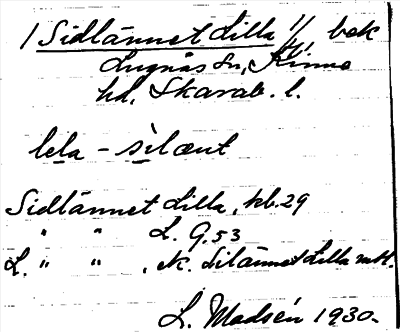 / Sidlännet Lilla 1/, bek
Lugnås sn, Kinne
hd, Skarab. l.
lela - sìlænt
Sidlännet Lilla, kb. 29
" " L. G. 53
L. " " , ek. Silännet Lilla
L. Madsén 1930.